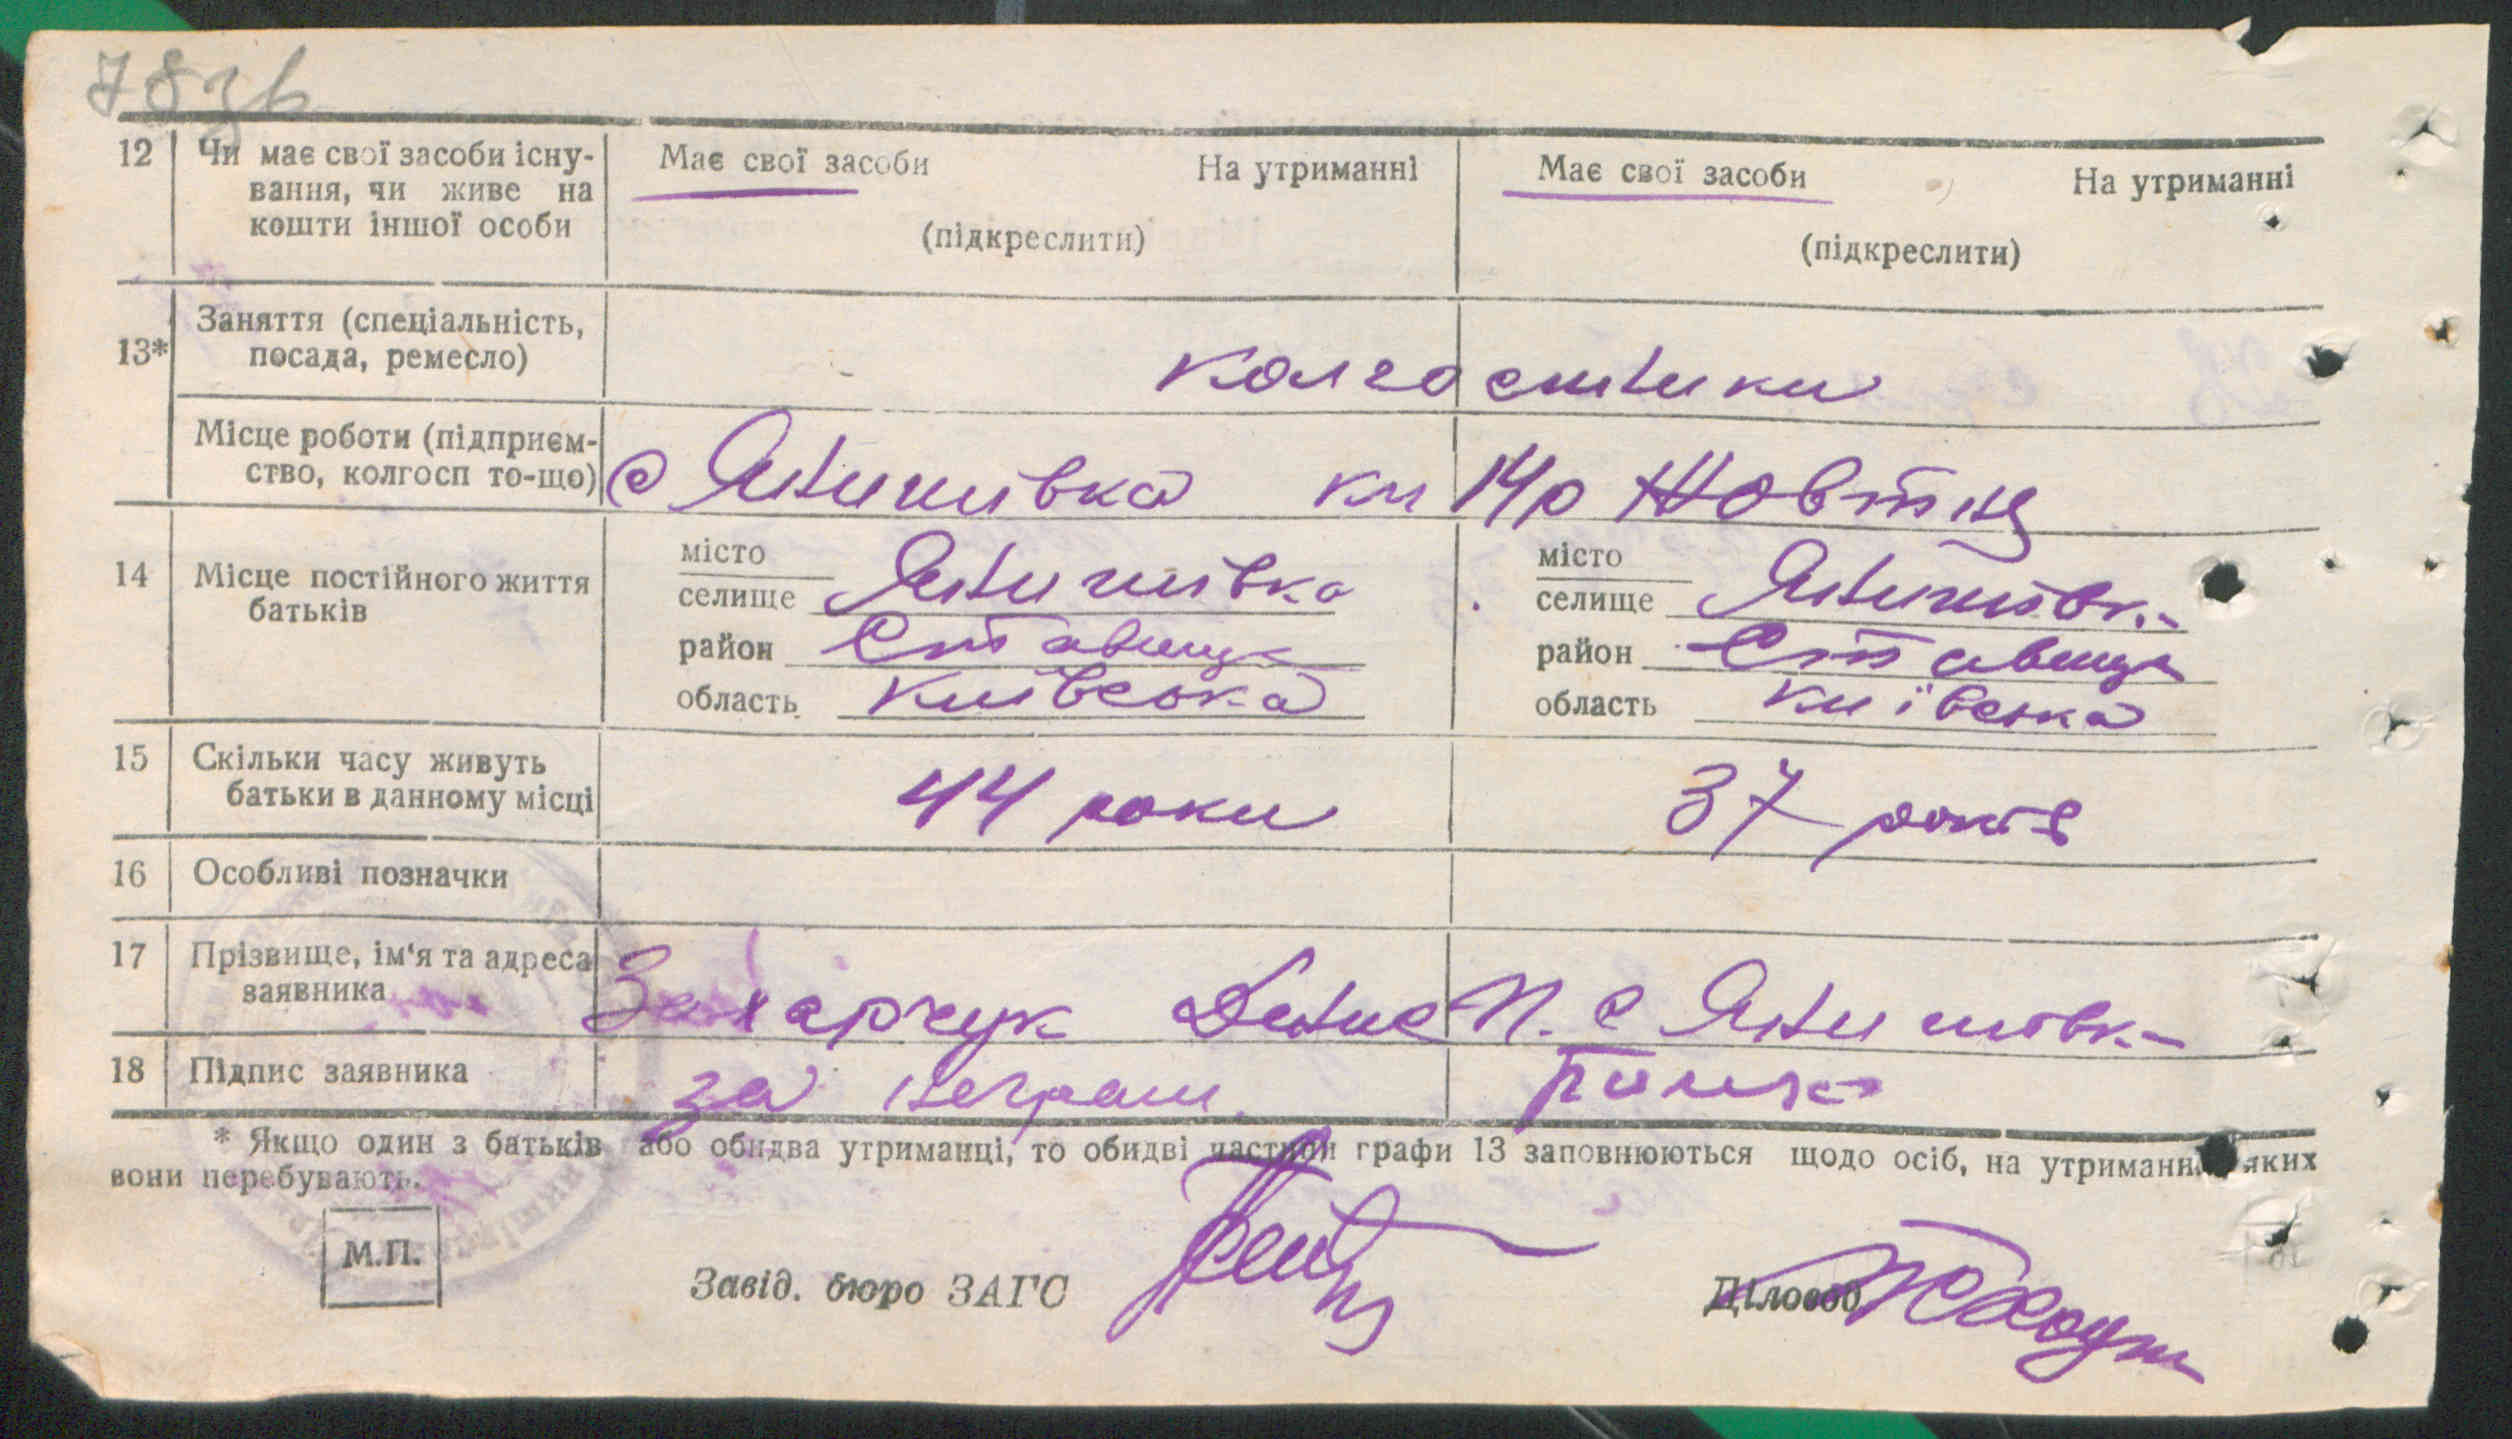 783б
12 Чи має свої засоби існу- Має свої засоби На утриманні Має свої засоби На утриманні
вання, чи живе на
кошти іншої особи (підкреслити) (підкреслити)
13* Заняття (спеціальність,
посада, ремесло) колгоспники
Місце роботи (підприєм-
ство, колгосп то-що) с Янишівка км 14р Жовтня
14 Місце постійного життя
батьків
місто місто
селище Янишівка селище Янишівк
район Ставищ район Ставищ
область Київська область Київська
15 Скільки часу живуть
батьки в данному місці 44 роки 37 років
16 Особливі позначки
17 Прізвище, ім'я та адреса
заявника Захарчук Денис П. с Янишівк
18 Підпис заявника за неграм.
* Якщо один з батьків або обидва утриманці, то обидві частини графи 13 заповнюються щодо осіб, на утриманні яких
вони перебувають.
М.П.
Завід. бюро ЗАГС Діловод